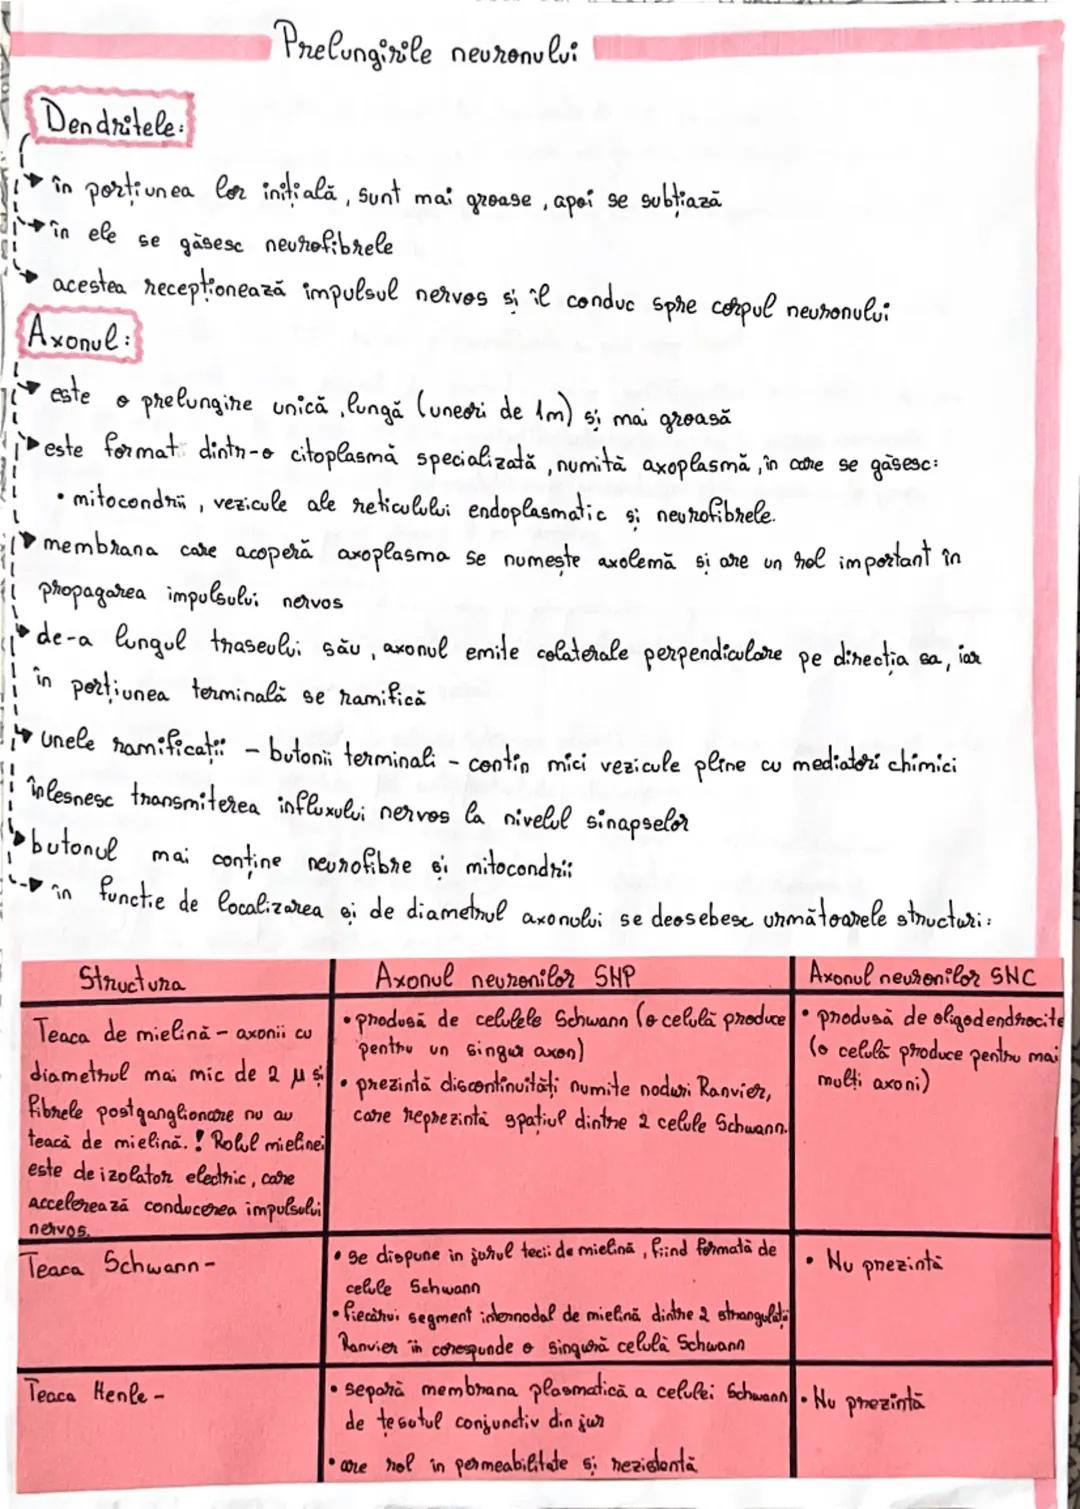 Prelungirile neuronului
Dendritele:
în porțiunea lor inițială, sunt mai groase, apoi se subțiază
în ele se găsesc neurofibrele
acestea recepționează impulsul nervos și îl conduc spre corpul neuronului
Axonul:
este o prelungire unică, lungă (uneori de 1m) și mai groasă
este format dintr-o citoplasmă specializată, numită axoplasmă, în care se găsesc:
• mitocondrii, vezicule ale reticulului endoplasmatic și neurofibrele.
membrana care acoperă axoplasma se numește axolemă și are un rol important în
propagarea impulsului nervos
de-a lungul traseului său, axonul emite colaterale perpendiculare pe direcția sa, iar
în porțiunea terminală se ramifică
unele ramificații - butonii terminali - conțin mici vezicule pline cu mediatori chimici
înlesnesc transmiterea influxului nervos la nivelul sinapselor
butonul mai conține neurofibre și mitocondrii
în funcție de localizarea și de diametrul axonului se deosebesc următoarele structuri:
Structura
Axonul neuronilor SNP
Axonul neuronilor SNC
Teaca de mielină - axonii cu
diametrul mai mic de 2 μ și
fibrele postganglionare nu au
teacă de mielină. ! Rolul mielinei
este de izolator electric, care
accelerează conducerea impulsului
nervos.
• produsă de celulele Schwann (o celulă produce
pentru un singur axon)
• prezintă discontinuități numite noduri Ranvier,
care reprezintă spațiul dintre 2 celule Schwann.
• produsă de oligodendrocite
(o celulă produce pentru mai
mulți axoni)
Teaca Schwann -
• se dispune în jurul tecii de mielină, fiind formată de
celule Schwann
• fiecărui segment internodal de mielină dintre 2 strangulații
Ranvier îi corespunde o singură celulă Schwann
• Nu prezintă
Teaca Henle -
• separă membrana plasmatică a celulei Schwann
de țesutul conjunctiv din jur
• are rol în permeabilitate și rezistență
• Nu prezintă